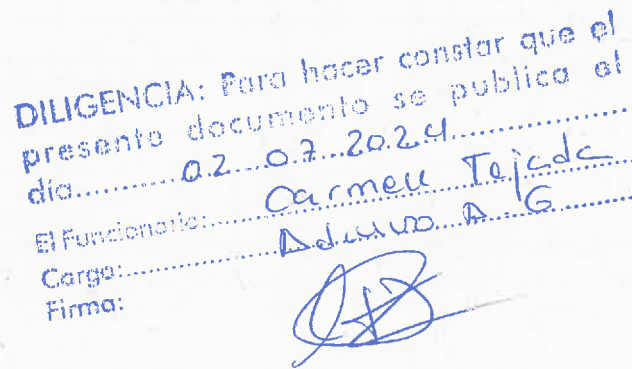 DILIGENCIA: Para hacer constar que el
presente documento se publica el
día......02 07 2024......
El Funcionario:......Carmen Tejada
Cargo:......Admvo A G......
Firma: